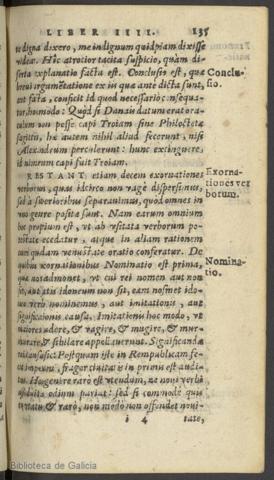 LIBER IIII. 135
te digna dixero, me indignum quidpiam dixisse
videar. Hic atrocior tacita suspicio, quàm di-
serta explanatio facta est. Conclusio est, quæ
brevi argumẽtatione ex iis quæ antè dicta sunt,
aut facta, conficit id quod necessariò consequa-
tur, hoc modo: Quòd si Danais datum erat ora-
culum non posse capi Troiam sine Philoctetæ
sagittis, hæ autem nihil aliud fecerunt, nisi
Alexandrum perculerunt: hunc extinguere,
id nimirum capi fuit Troiam.
Conclu-
sio.
RESTANT etiam decem exornationes
verborum, quas idcirco non vagè dispersimus,
sed à superioribus separavimus, quòd omnes in
vno genere positæ sunt. Nam earum omnium
hoc proprium est, vt ab vsitata verborum po-
testate recedatur, atque in aliam rationem
cum quadam venustate oratio conferatur. De
quibus exornationibus Nominatio est prima,
quæ nos admonet, vt cui rei nomen aut non
sit, aut satis idoneum non sit, eam nosmet ido-
neo verbo nominemus, aut imitationis, aut
significationis causa. Imitationis hoc modo, vt
maiores rudere, & vagire, & mugire, & mur-
murare & sibilare appellaverunt. Significandæ
rei causa sic: Postquam iste in Rempublicam fe-
cit impetum, fragor civitatis in primis est audi-
tus. Hoc genere rarò est vtendum, ne novi verbi
assiduitas odium pariat: sed si commodè quis
vtatur, & rarò, non modò non offendet novi-
Exorna-
tiones ver
borum.
Nomina-
tio.
i 4 tate,
Biblioteca de Galicia